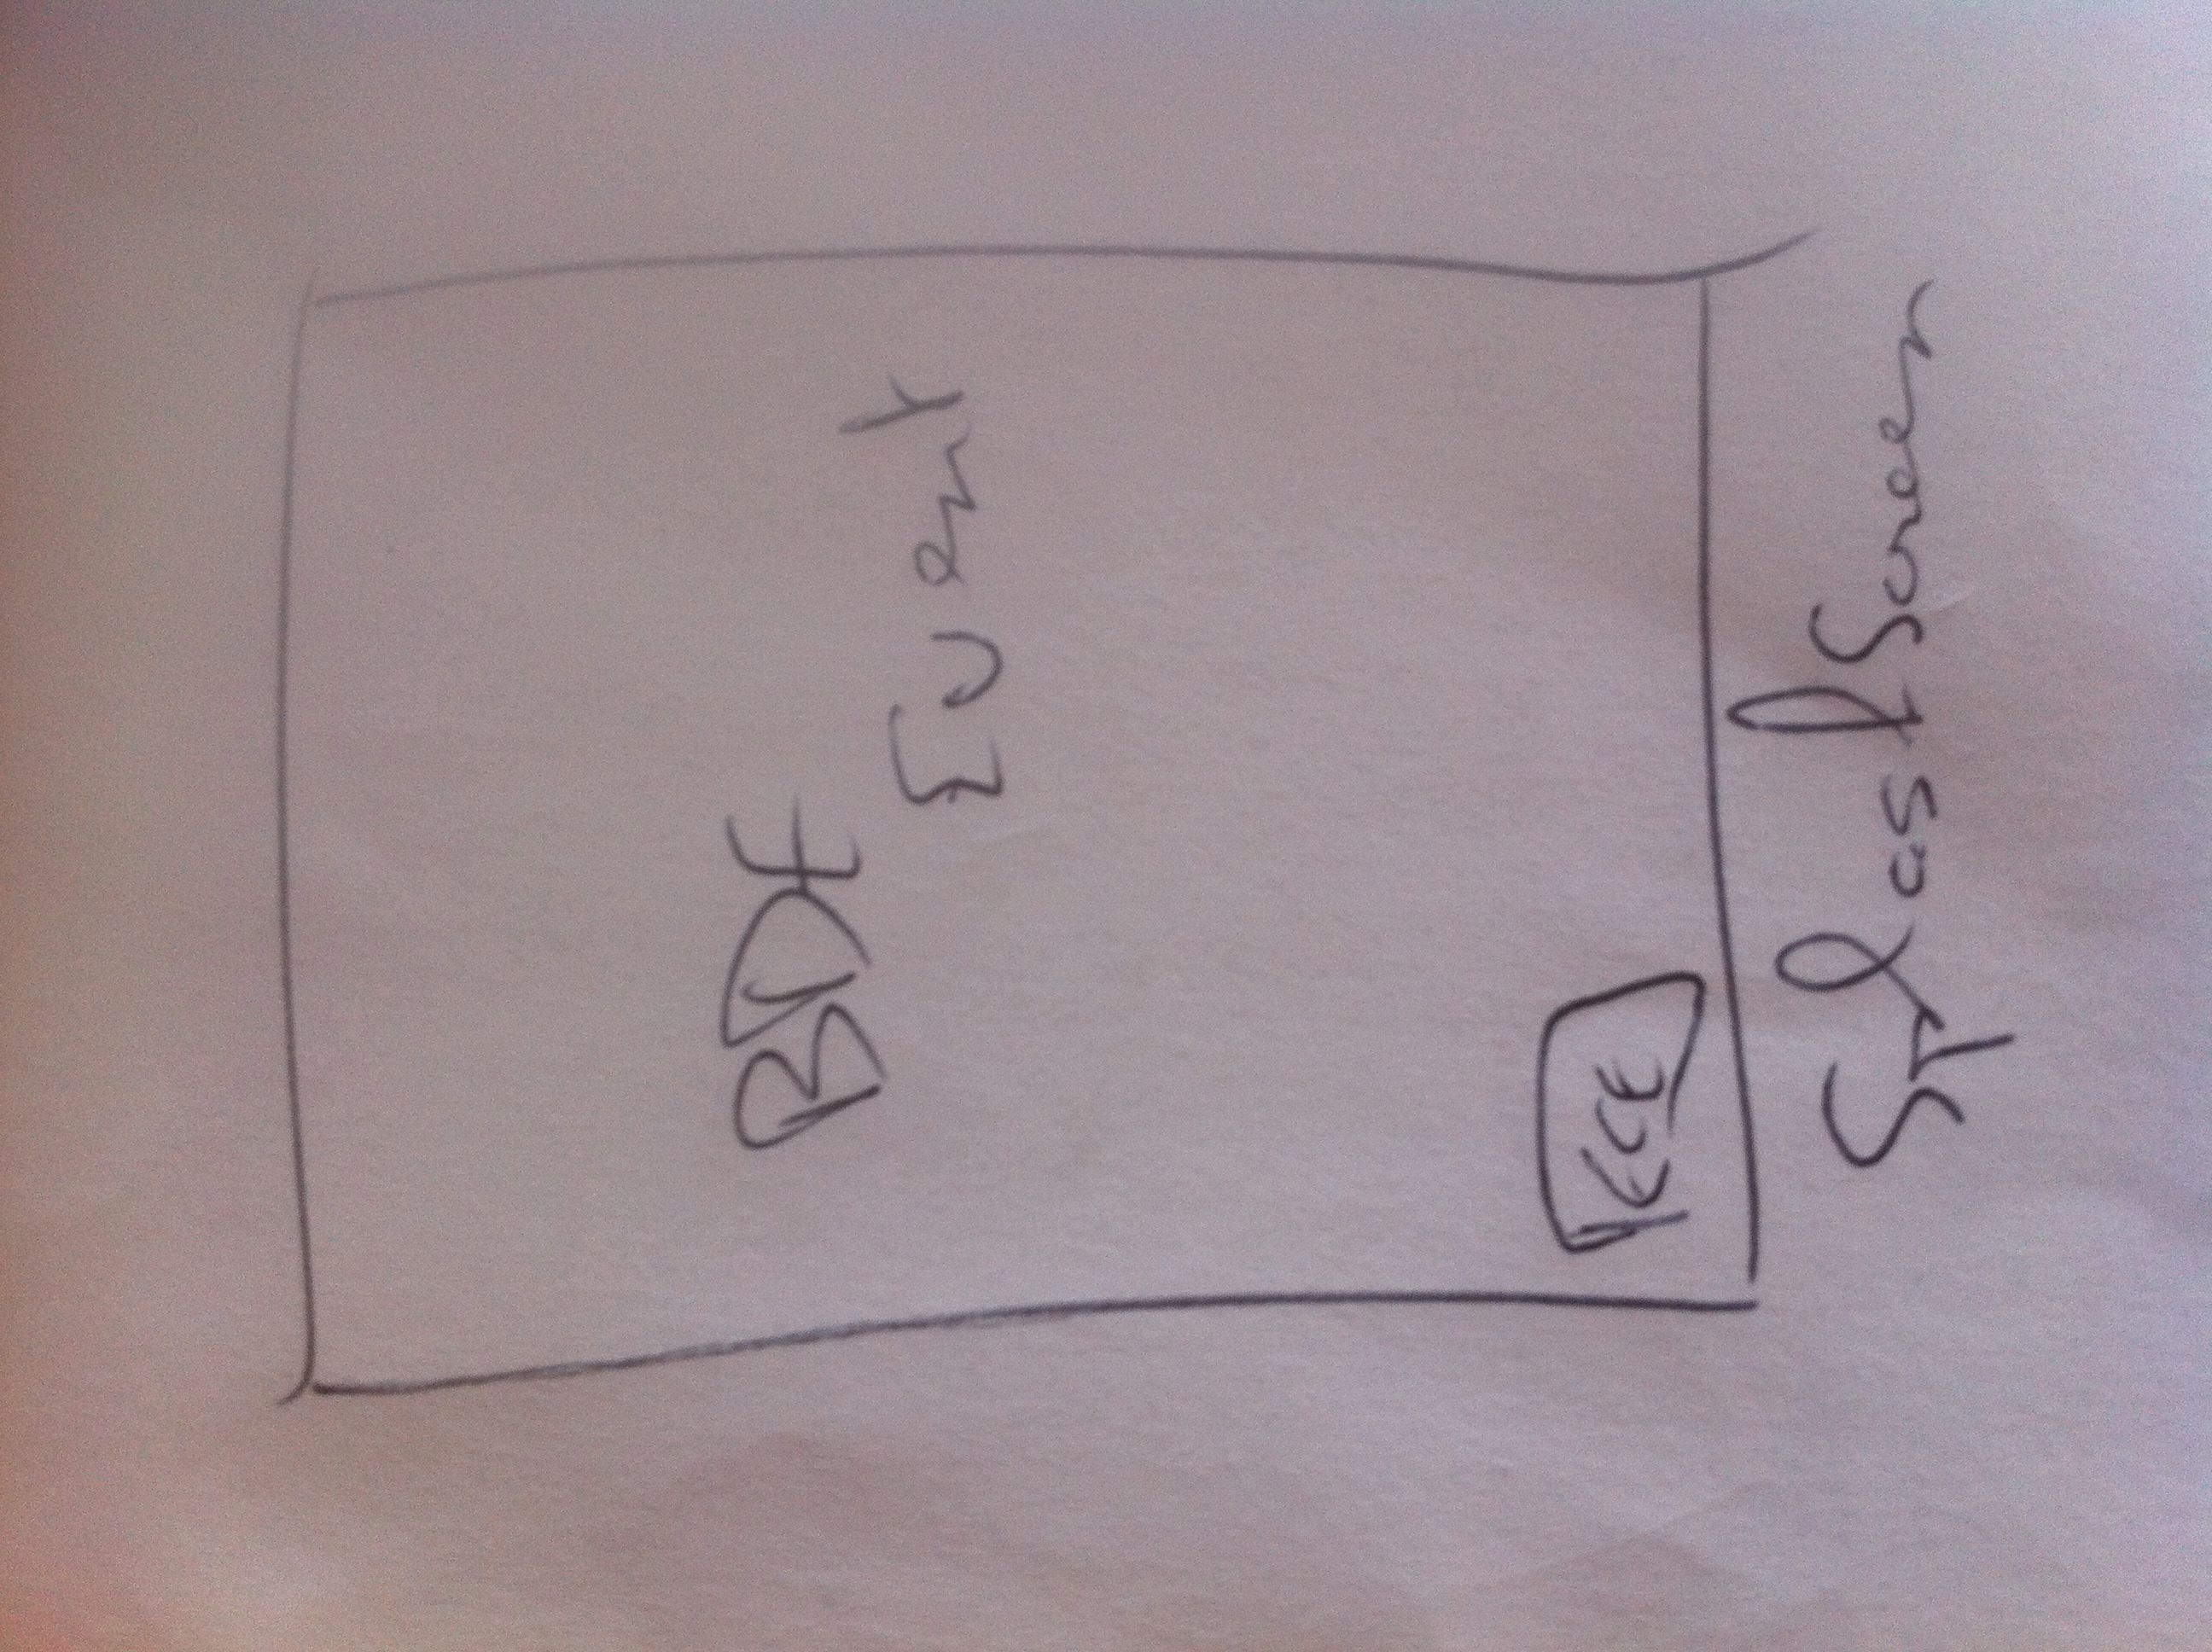 BDE
Event
ECE
SplashScreen